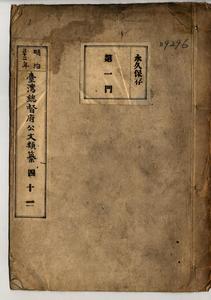 永久保存
第一門
29296
明治
臺灣總督府公文類纂 四十一